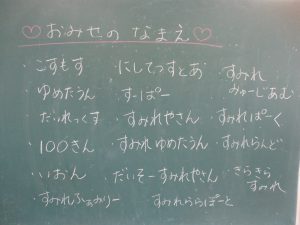 ♡おみせの なまえ♡
・こすもす ・にしてつすとあ ・すみれみゅーじあむ
・ゆめたうん ・すーぱー
・だいれっくす ・すみれやさん ・すみれぱーく
・100きん ・すみれ ゆめたうん ・すみれらんど
・いおん ・だいそーすみれやさん ・きらきらすみれ
・すみれふぁみりー ・すみれららぽーと